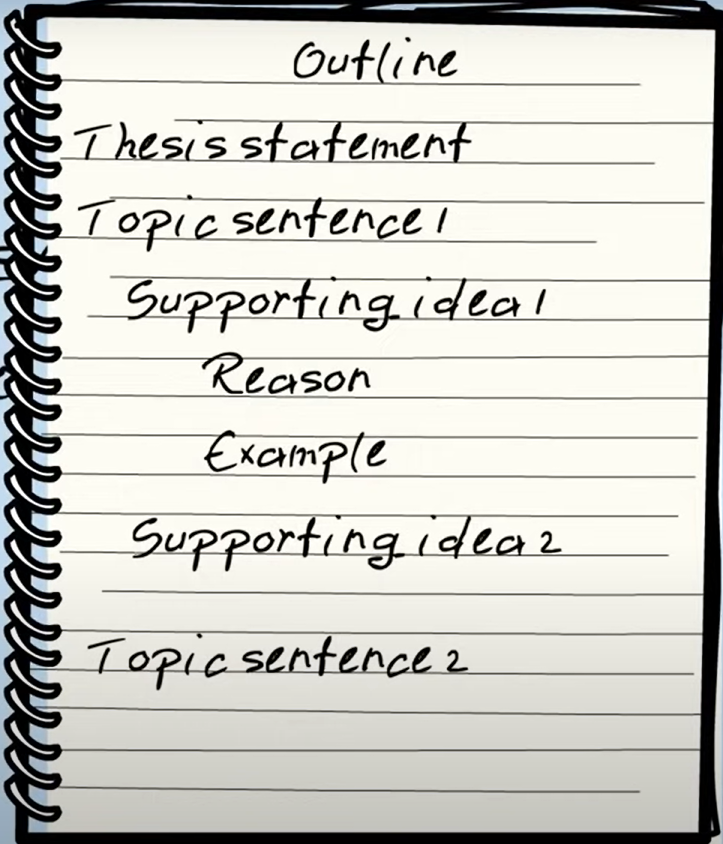 Outline
Thesis statement
Topic sentence 1
Supporting idea 1
Reason
Example
Supporting idea 2
Topic sentence 2